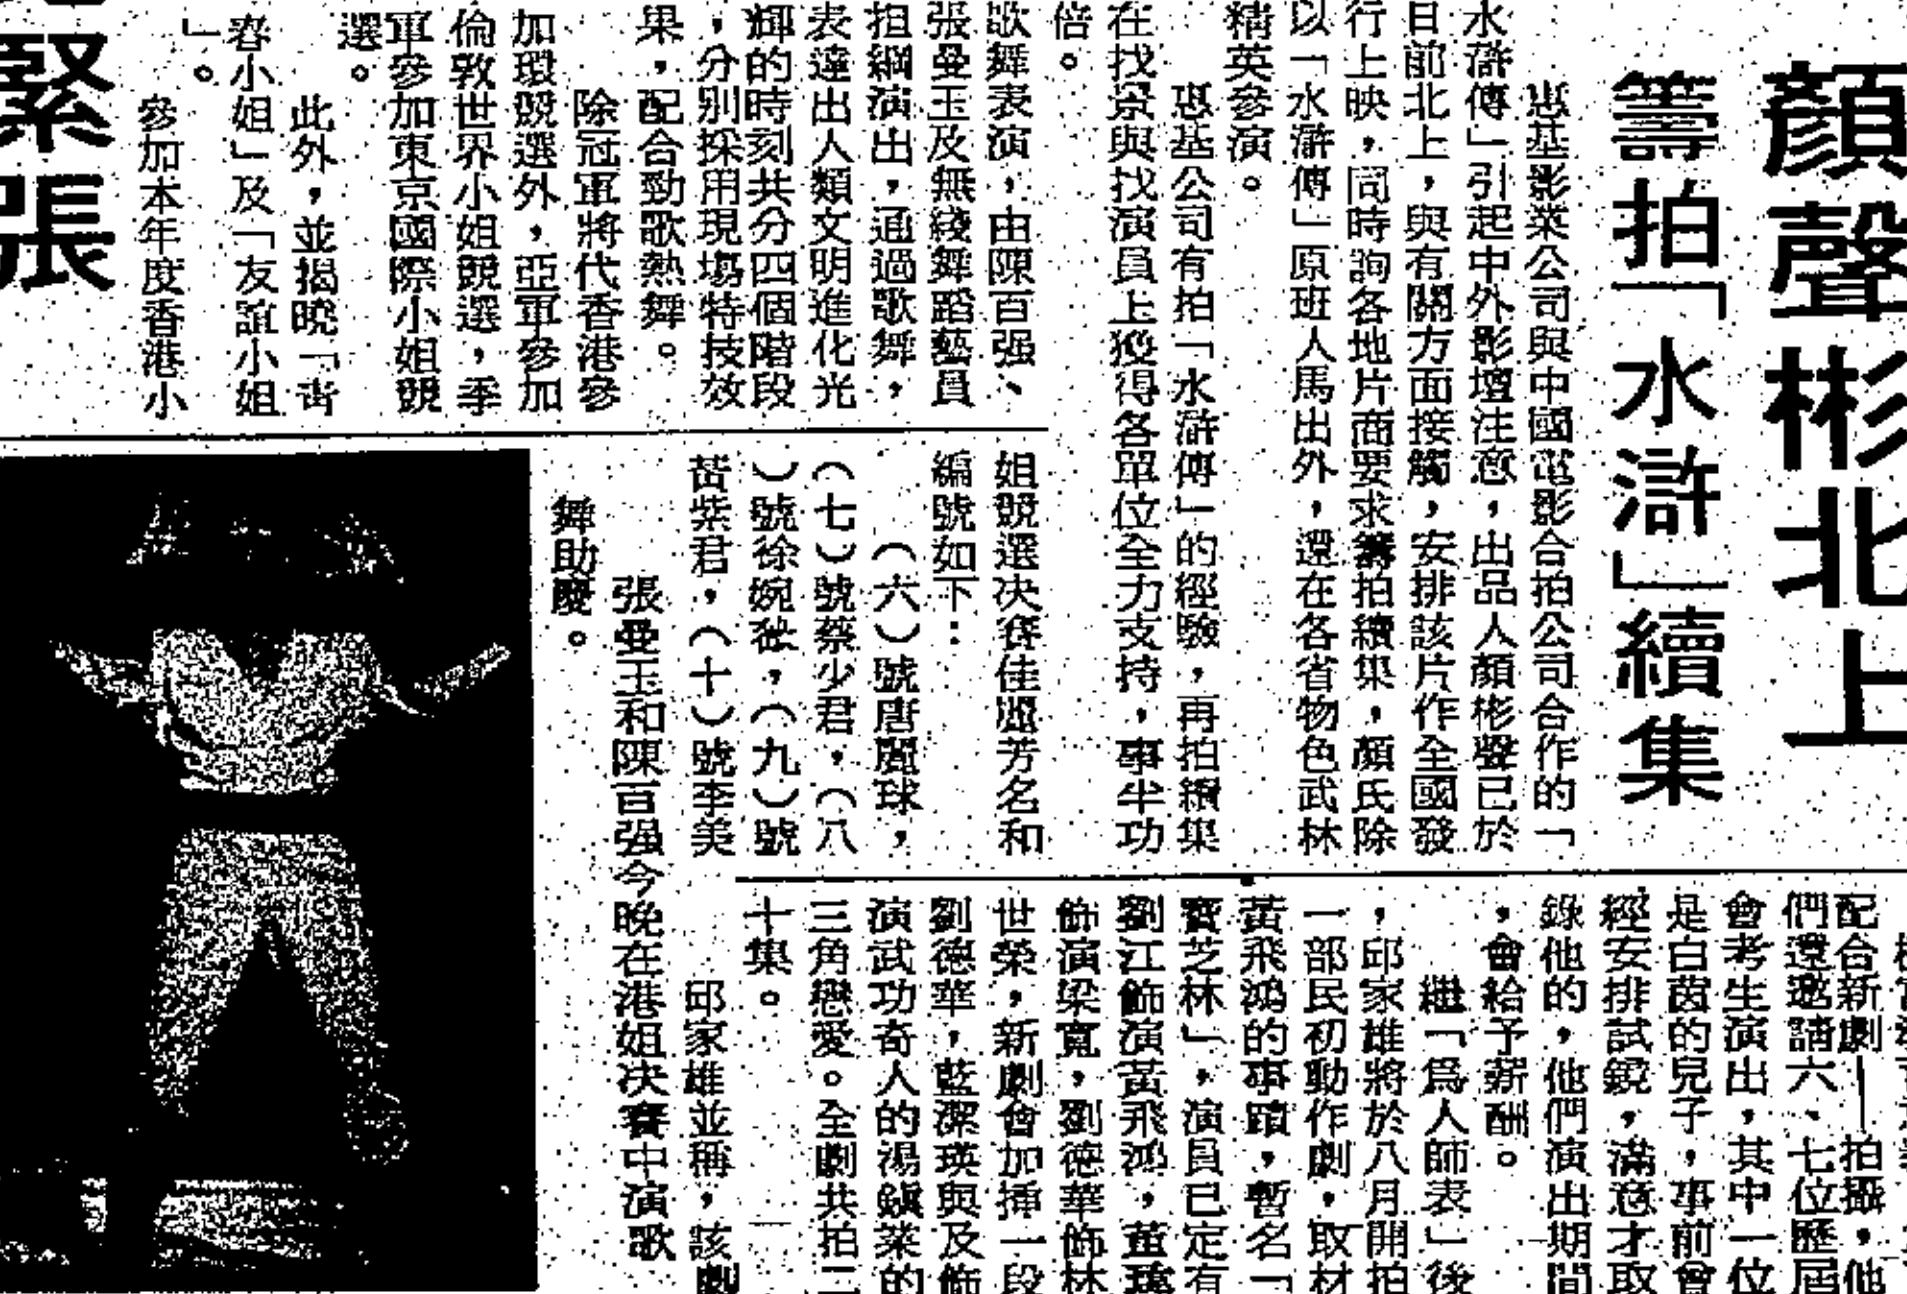 顏聲彬北上
籌拍「水滸」續集
惠基影業公司與中國電影合拍公司合作的「
水滸傳」引起中外影壇注意，出品人顏彬聲已於
日前北上，與有關方面接觸，安排該片作全國發
行上映，同時詢各地片商要求籌拍續集，顏氏除
以「水滸傳」原班人馬出外，還在各省物色武林
精英參演。
惠基公司有拍「水滸傳」的經驗，再拍續集
在找景與找演員上獲得各單位全力支持，事半功
倍。
歌舞表演，由陳百强、
張曼玉及無綫舞蹈藝員
担綱演出，通過歌舞，
表達出人類文明進化光
輝的時刻共分四個階段
，分別採用現塲特技效
果，配合勁歌熱舞。
除冠軍將代香港參
加環競選外，亞軍參加
倫敦世界小姐競選，季
軍參加東京國際小姐競
選。
此外，並揭曉「青
春小姐」及「友誼小姐
」。
參加本年度香港小
姐競選决賽佳麗芳名和
編號如下：
（六）號唐麗球，
（七）號蔡少君，（八
）號徐婉，（九）號
黃紫君，（十）號李美
緊張
張曼玉和陳百强今晚在港姐决賽中演歌
舞助慶。
配合新劇——拍攝，他
們還邀請六、七位歷屆
會考生演出，其中一位
是白茵的兒子，事前會
經安排試鏡，滿意才取
錄他的，他們演出期間
，會給予薪酬。
繼「爲人師表」後
，邱家雄將於八月開拍
一部民初動作劇，取材
黃飛鴻的事蹟，暫名「
寶芝林」，演員已定有
劉江飾演黃飛鴻，董瑋
飾演梁寬，劉德華飾林
世榮，新劇會加揷一段
劉德華，藍潔瑛與及飾
演武功奇人的湯鎮業的
三角戀愛。全劇共拍二
十集。
邱家雄並稱，該劇